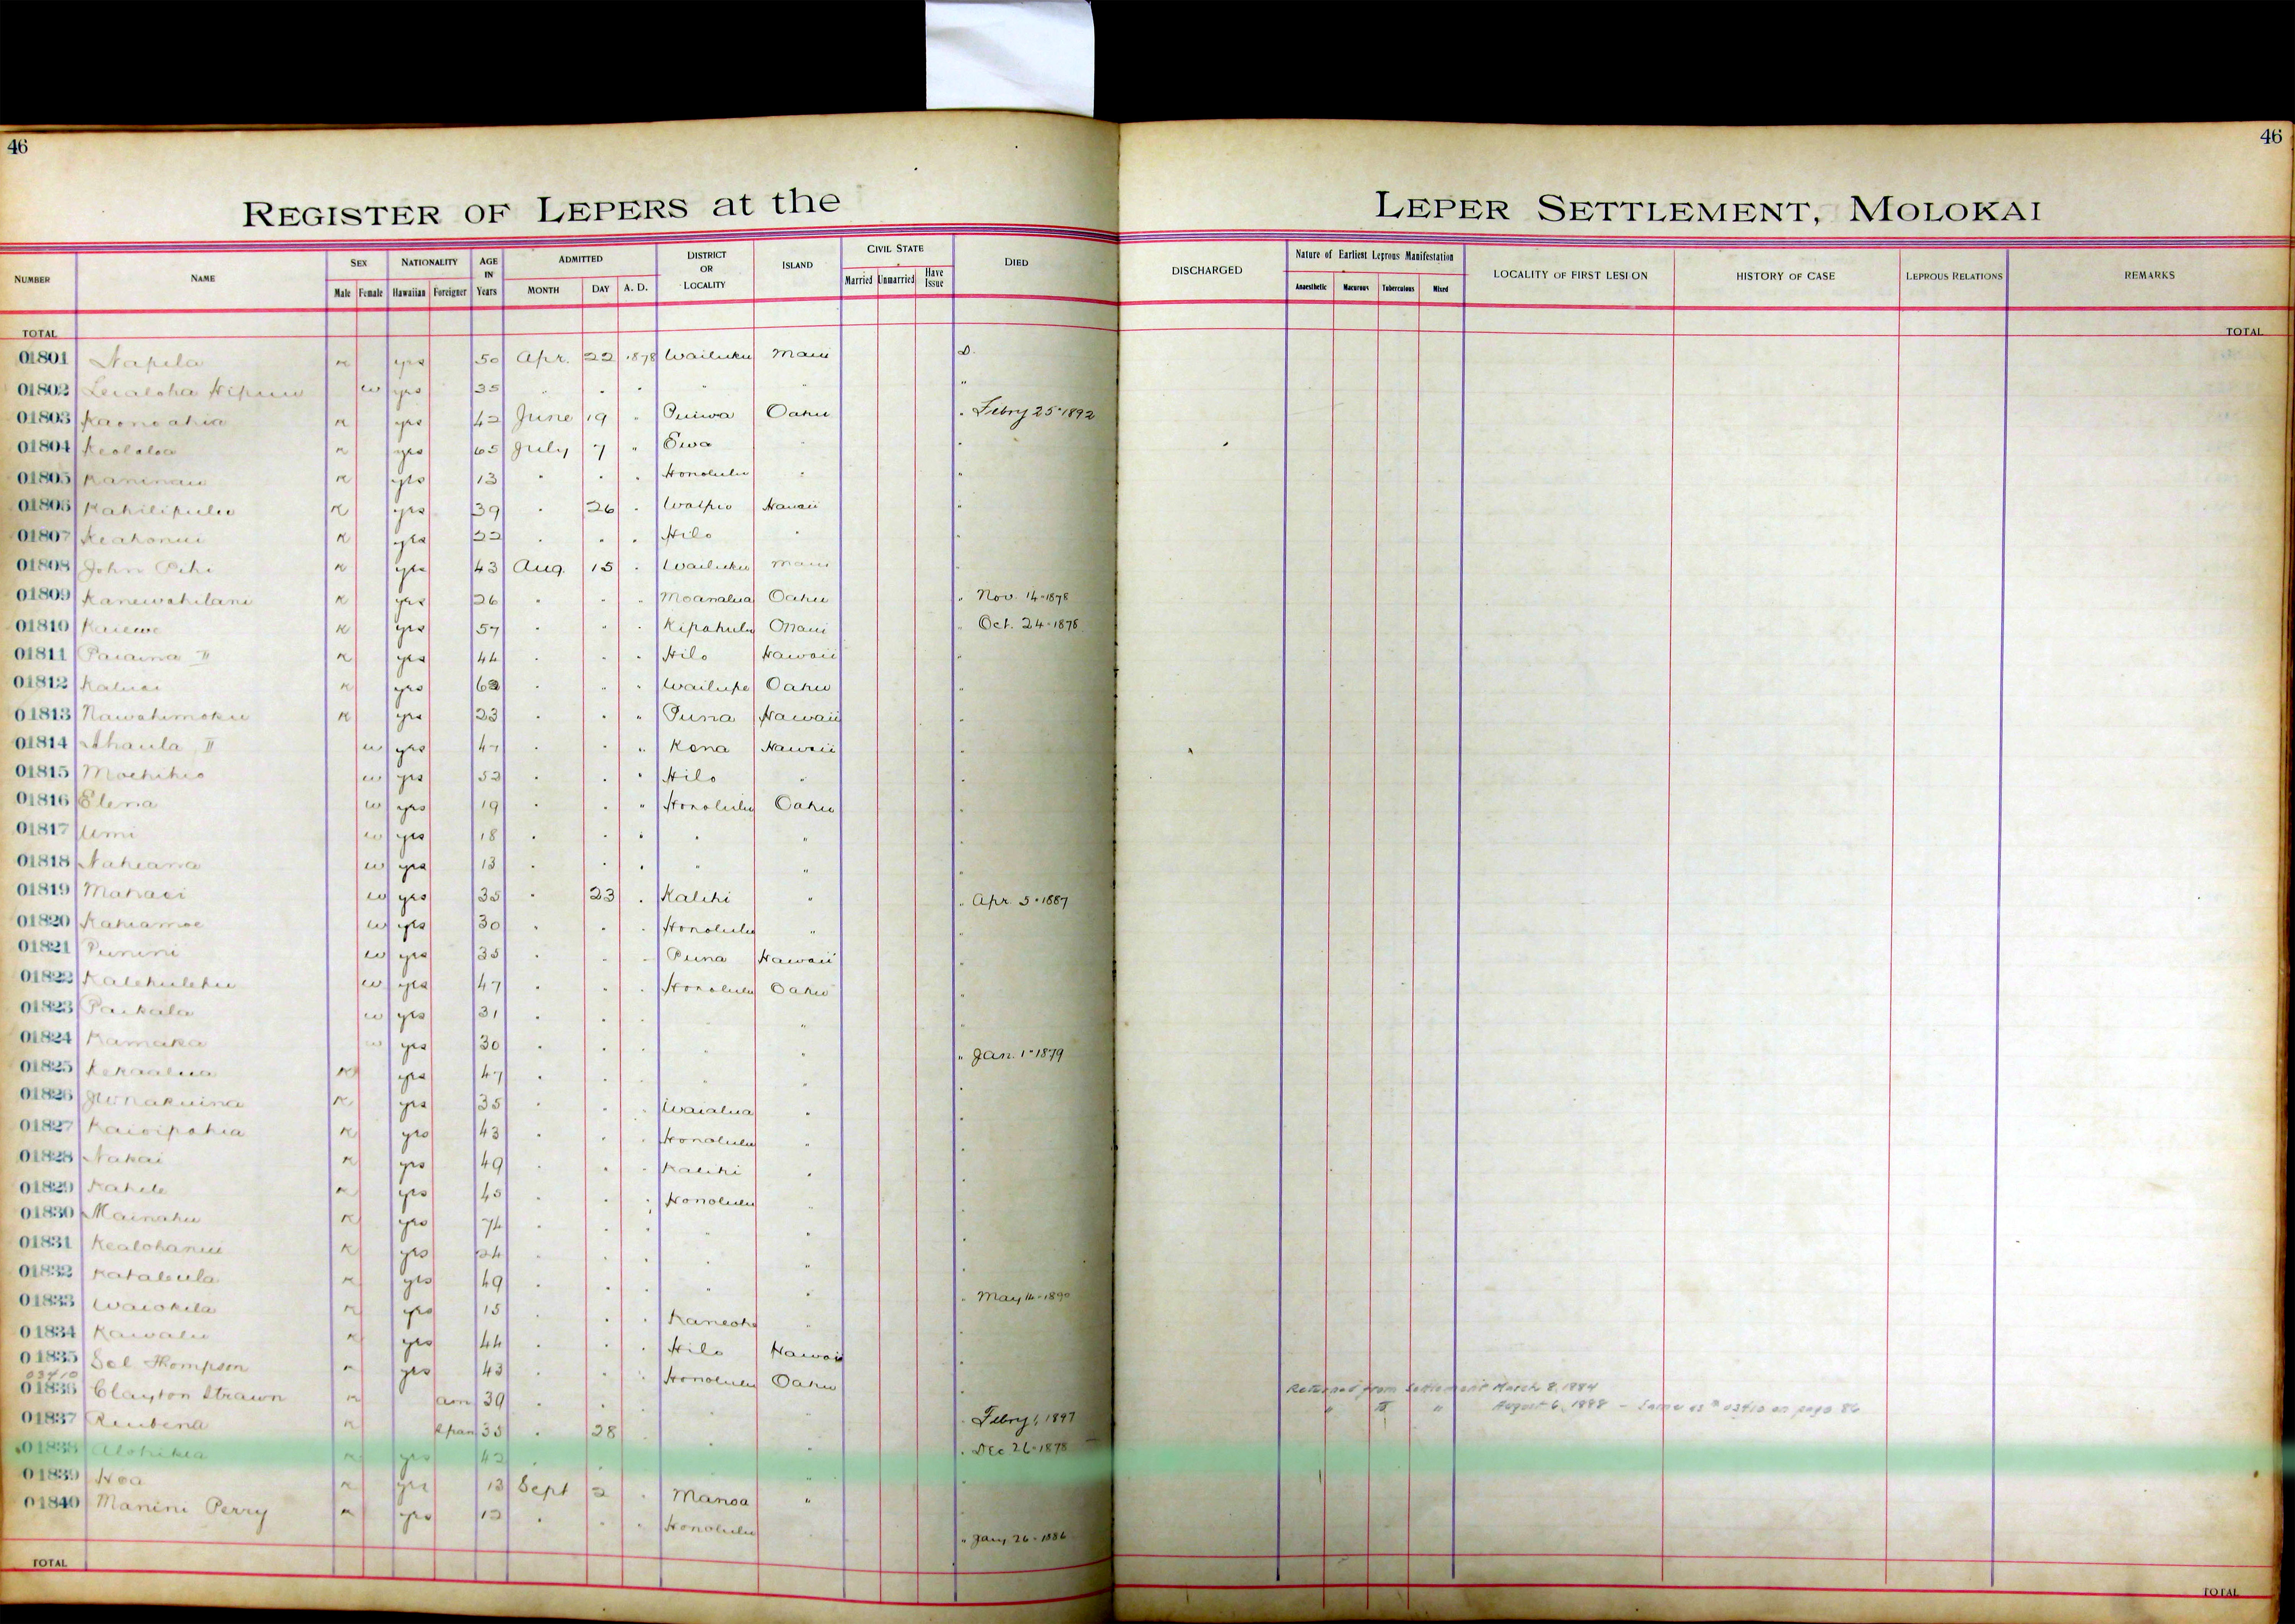 46
46
REGISTER OF LEPERS at the LEPER SETTLEMENT, MOLOKAI
NUMBER NAME SEX Male Female NATIONALITY Hawaiian Foreigner AGE IN Years ADMITTED MONTH DAY A. D. DISTRICT OR LOCALITY ISLAND CIVIL STATE Married Unmarried Have Issue DIED DISCHARGED Nature of Earliest Leprous Manifestation Anaesthetic Macurous Tuberculous Mixed LOCALITY OF FIRST LESION HISTORY OF CASE LEPROUS RELATIONS REMARKS
TOTAL TOTAL
01801 Napela m yes 50 Apr. 22 1878 Wailuku Maui D.
01802 Lealoha w yes 35 " " " " " "
01803 Kaonoahia m yes 42 June 19 " Puiwa Oahu " Febry 25 1892
01804 Keololoa m yes 65 July 7 " Ewa " "
01805 Kaninau m yes 13 " " " Honolulu " "
01806 Kahilipulu m yes 39 " 26 " Waipio Hawaii "
01807 Keahonui m yes 22 " " " Hilo " "
01808 John m yes 43 Aug. 15 " Wailuku Maui "
01809 Kanewahilani m yes 26 " " " Moanalua Oahu " Nov. 14-1878
01810 Kaiewe m yes 57 " " " Kipahulu Maui " Oct. 24-1878
01811 Paiaina II m yes 44 " " " Hilo Hawaii "
01812 Kaluai m yes 62 " " " Wailupe Oahu "
01813 Nawahimoku m yes 23 " " " Puna Hawaii "
01814 Ahaula II w yes 47 " " " Kona Hawaii "
01815 Moehikio w yes 52 " " " Hilo " "
01816 Elena w yes 19 " " " Honolulu Oahu "
01817 Umi w yes 18 " " " " " "
01818 Nahiana w yes 13 " " " " " "
01819 Mahaei w yes 35 " 23 " Kalihi " " Apr. 5-1887
01820 Kahiamoe w yes 30 " " " Honolulu " "
01821 Punini w yes 35 " " " Puna Hawaii "
01822 Kalehulehu w yes 47 " " " Honolulu Oahu "
01823 Paikala w yes 31 " " " " " "
01824 Kamaka w yes 30 " " " " " " Jan. 1-1879
01825 Kekaalua m yes 47 " " " " " "
01826 Nakuina m yes 35 " " " Waialua " "
01827 Kaioipahia m yes 43 " " " Honolulu " "
01828 Nakai m yes 49 " " " Kalihi " "
01829 Kahele m yes 45 " " " Honolulu " "
01830 Mainahu m yes 74 " " " " " "
01831 Kealohanui m yes 24 " " " " " "
01832 Kahalaula m yes 49 " " " " " " May 14-1890
01833 Waiohila m yes 15 " " " Kaneohe " "
01834 Kawalu m yes 44 " " " Hilo Hawaii "
01835 Sol Thompson m yes 43 " " " Honolulu Oahu "
03410
01836 Clayton Strawn m am 39 " " " " " " Febry 1, 1897 Returned from Settlement March 8, 1884
" " August 6, 1888 - Same as # 03410 on page 86
01837 Reubena m 35 " 28 " " " " Dec 26-1878
01838 Alohikea m yes 42 " " " " " "
01839 Hoa m yes 13 Sept 2 " Manoa " "
01840 Manini Perry m yes 12 " " " Honolulu " " Jany 26-1886
TOTAL TOTAL